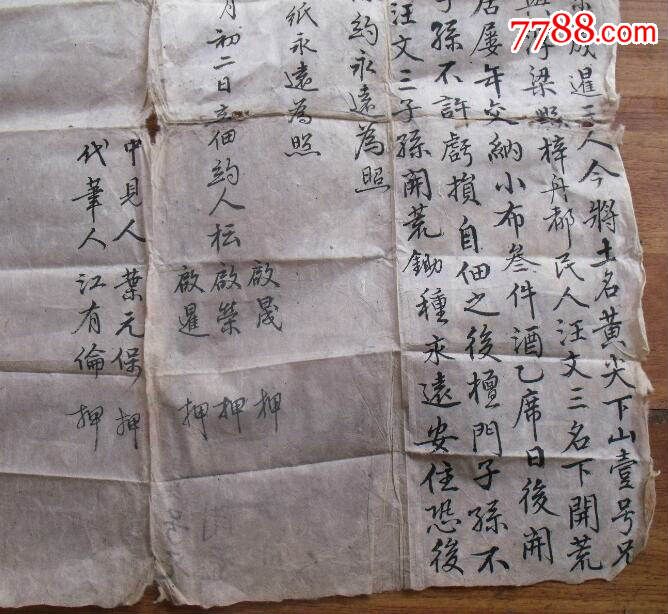 7788.com
中国收藏热线
晟暹三人今將土名黃尖下山壹号
與浮梁縣梓舟都民人汪文三名下開荒
居屡年交納小布叁件酒乙席日後開
子孫不許虧損自佃之後檀門子孫不
汪文三子孫開荒鋤種永遠安住恐後
約永遠為照
纸永遠為照
啟晟 押
月初二日立佃約人 啟榮 押
啟暹 押
中見人葉元保 押
代筆人江有倫 押